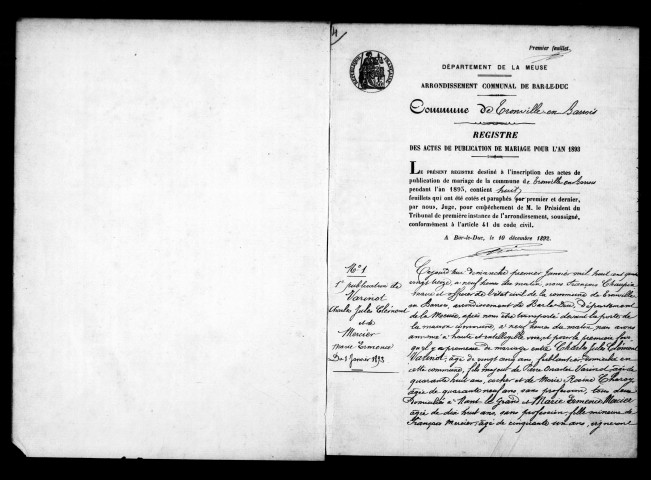 Premier feuillet.
DÉPARTEMENT DE LA MEUSE
ARRONDISSEMENT COMMUNAL DE BAR-LE-DUC
Commune de Tronville en Barrois
REGISTRE
DES ACTES DE PUBLICATION DE MARIAGE POUR L'AN 1893
LE PRÉSENT REGISTRE destiné à l'inscription des actes de
publication de mariage de la commune de Tronville en Barrois
pendant l'an 1893, contient huit
feuillets qui ont été cotés et paraphés par premier et dernier,
par nous, Juge, pour empêchement de M. le Président du
Tribunal de première instance de l'arrondissement, soussigné,
conformément à l'article 41 du code civil.
A Bar-le-Duc, le 10 décembre 1892.
N° 1
1e publication de
Varinot
Charles Jules Clément
et de
Mercier
Marie Ermence
Du 1 Janvier 1893
Cejourd'hui dimanche premier Janvier mil huit cent quatre
vingt treize, à neuf heures du matin, nous François
maire et officier de l'état civil de la commune de Tronville
en Barrois, arrondissement de Bar-le-Duc, département
de la Meuse, après nous être transporté devant la porte de
la maison commune, à neuf heures du matin, nous avons
annoncé à haute et intelligible voix, et pour la première fois
qu'il y a promesse de mariage entre Charles Jules Clément
Varinot, âgé de vingt ans, ferblantier, domicilié en
cette commune, fils majeur de Pierre Varinot, âgé de
quarante huit ans, cocher et de Marie Rosine
âgée de quarante neuf ans sans profession, tous deux
domiciliés à Nant le Grand et Marie Ermence Mercier
âgée de dix huit ans, sans profession, fille mineure de
François Mercier, âgé de cinquante ans, vigneron